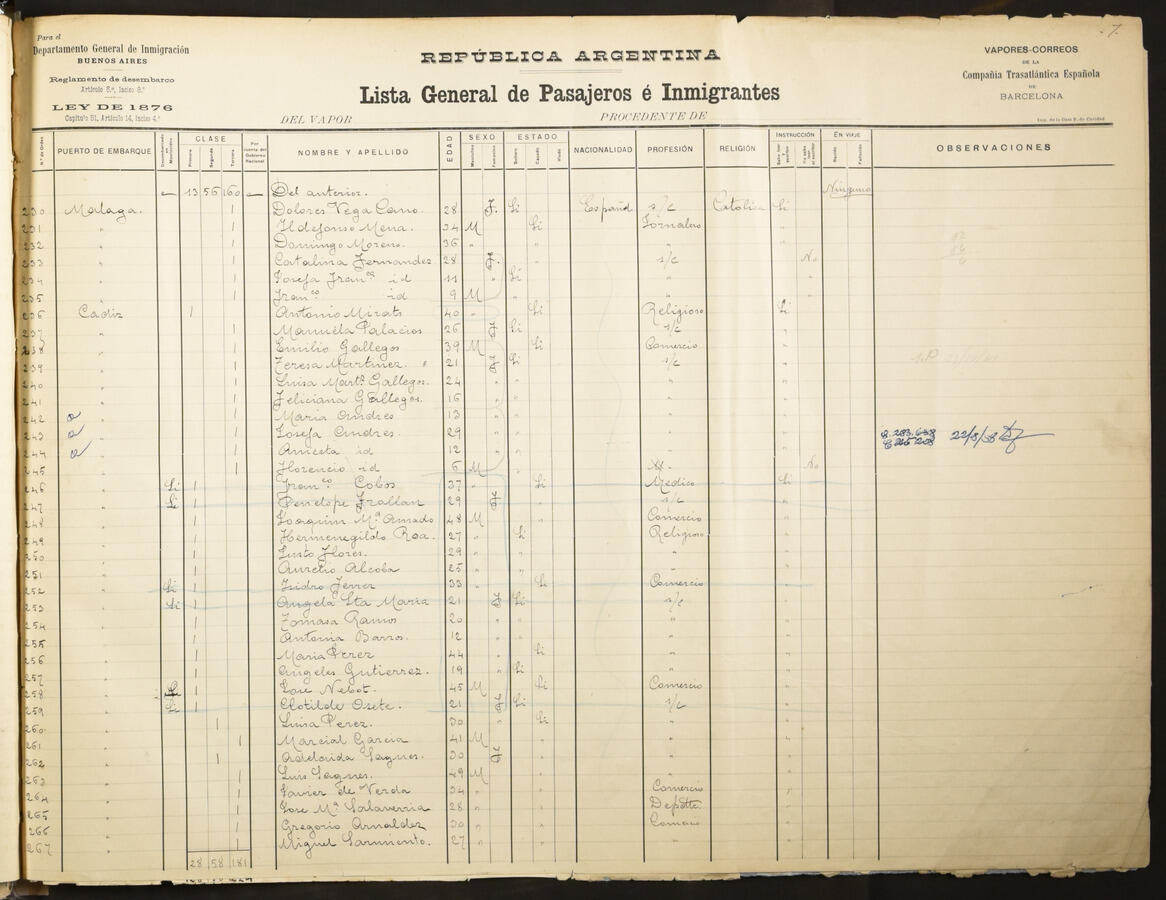 7.
Para el
Departamento General de Inmigración
BUENOS AIRES
Reglamento de desembarco
Artículo 5.º, Inciso 8.º
LEY DE 1876
Capítulo 51, Artículo 14, Inciso 4.º
REPÚBLICA ARGENTINA
Lista General de Pasajeros é Inmigrantes
DEL VAPOR PROCEDENTE DE
VAPORES-CORREOS
DE LA
Compañía Trasatlántica Española
DE
BARCELONA
Imp. de la Casa P. de Caridad
N.º de Orden PUERTO DE EMBARQUE CLASE Primera Segunda Tercera Por cuenta del Gobierno Nacional NOMBRE Y APELLIDO EDAD SEXO Masculino Femenino ESTADO Soltero Casado Viudo NACIONALIDAD PROFESIÓN RELIGIÓN INSTRUCCIÓN Sabe leer y escribir No sabe leer ni escribir EN VIAJE Nacido Fallecido OBSERVACIONES
13 56 160 Del anterior. Ninguno
230 Malaga. 1 Dolores Vega Cano. 28 F. Si Español s/c Catolica Si
231 " 1 Ildefonso Mena. 34 M Si Jornalero "
232 " 1 Domingo Moreno. 36 " " " "
233 " 1 Catalina Fernandez 28 F. " s/c No
234 " 1 Josefa Fran.ca id 11 " Si " "
235 " 1 Fran.co id 9 M " " "
236 Cadiz 1 Antonio Mirats 40 " Si Religioso Si
237 " 1 Manuela Palacios 26 F Si s/c "
238 " 1 Emilio Gallegos 39 M Si Comercio "
239 " 1 Teresa Martinez. " 21 F Si s/c "
240 " 1 Luisa Mart.z Gallegos. 24 " " " "
241 " 1 Feliciana Gallegos. 16 " " " "
242 " 1 Maria Andres 13 " " " "
243 " 1 Josefa Andres. 29 " " " " 22/8/38
244 " 1 Aniceta id 12 " " " "
245 " 1 Florencio id 6 M " No
246 " Si 1 Fran.co Cobos 37 " Si Medico Si
247 " Si 1 Penelope Frallan 29 F " s/c "
248 " 1 Joaquin M.ª Amado 48 M " Comercio "
249 " 1 Hermenegildo Roa. 27 " Si Religioso "
250 " 1 Justo Flores. 29 " " " "
251 " 1 Aurelio Alcoba 25 " " " "
252 " Si 1 Isidro Ferrer 33 " Si Comercio "
253 " Si 1 Angela Sta Maria 21 F Si s/c "
254 " 1 Tomasa Ramos 20 " " " "
255 " 1 Antonia Barros. 12 " " " "
256 " 1 Maria Perez 44 " Si " "
257 " 1 Angeles Gutierrez. 19 " Si " "
258 " Si 1 Jose Nebot. 45 M Si Comercio "
259 " Si 1 Clotilde Osete. 21 F Si s/c "
260 " 1 Luisa Perez. 30 " Si " "
261 " 1 Marcial Garcia 41 M " " "
262 " 1 Adelaida Sagues. 30 F " " "
263 " Luis Sagues. 49 M " " "
264 " 1 Javier de Verda 34 " " Comercio "
265 " 1 Jose M.ª Salaverria 28 " " "
266 " 1 Gregorio Arnaldez 30 " " Comercio "
267 " 1 Miguel Sarmiento. 27 " " "
28 58 181